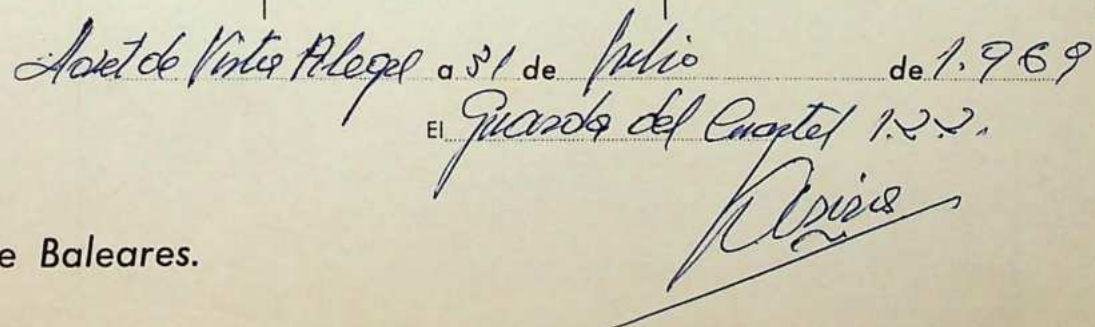 de Vista Alegre a 31 de Julio de 1.969
El Guarda del Cuartel 122.
e Baleares.